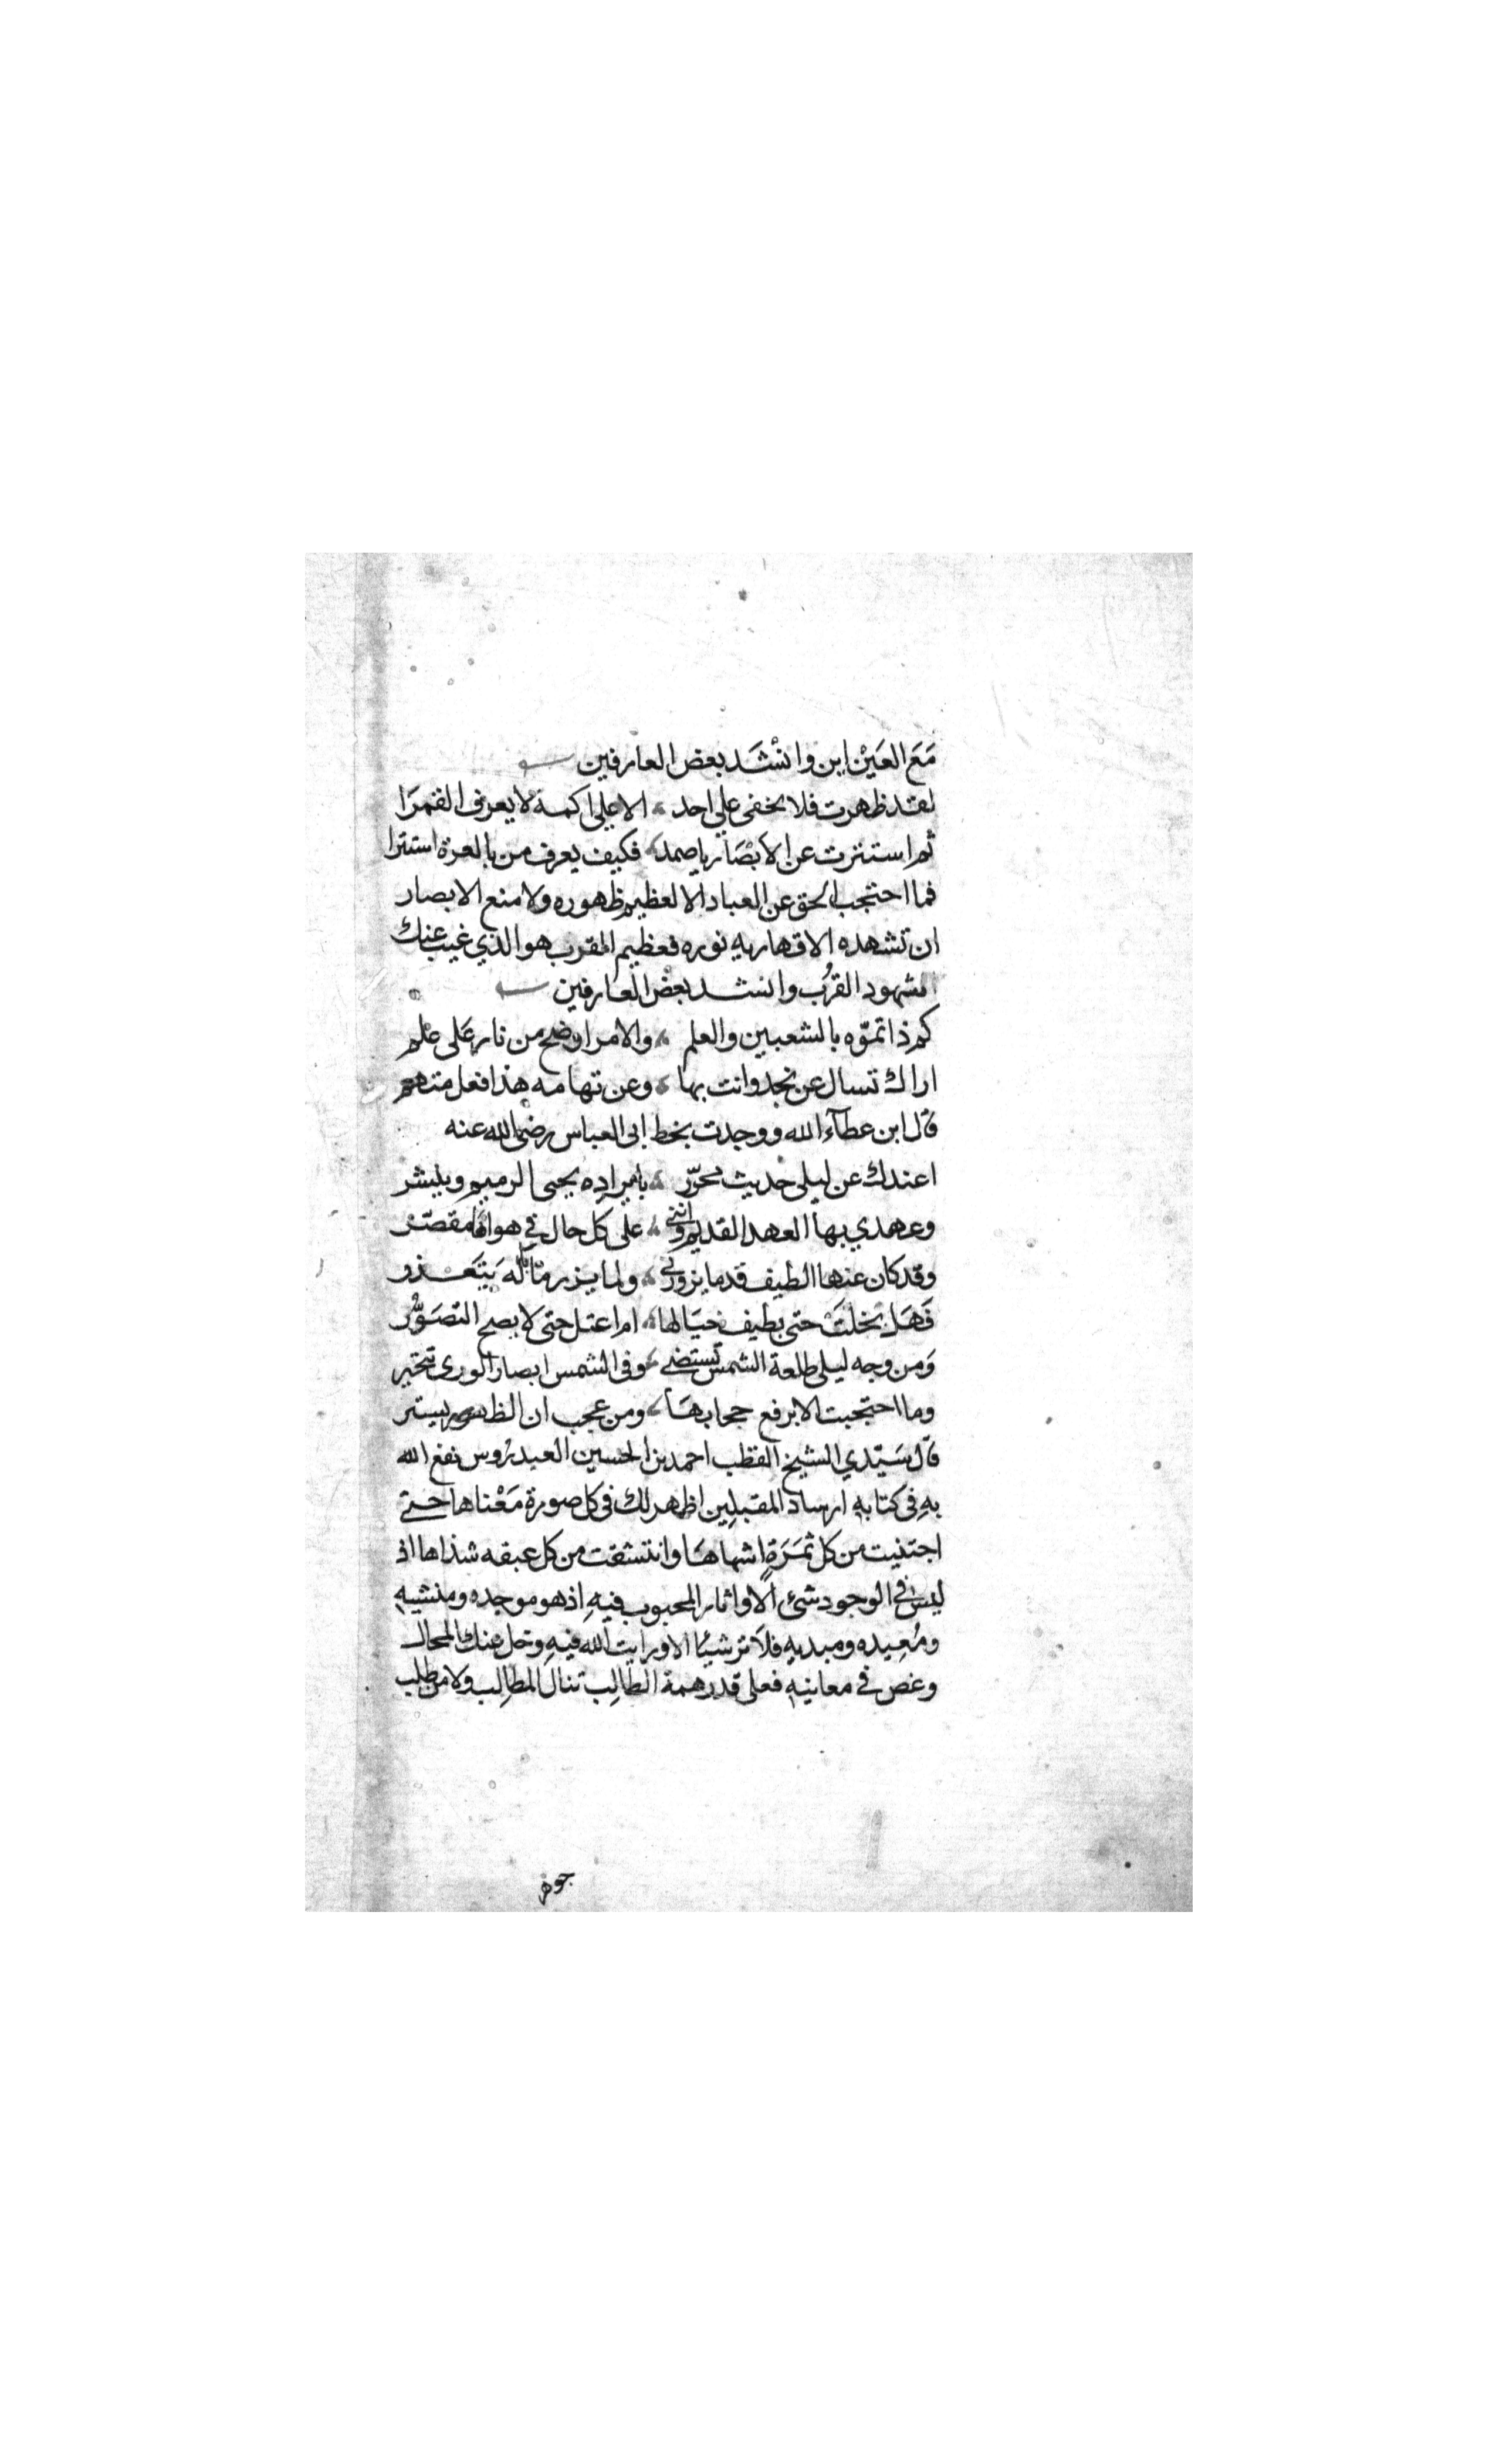 مَعَ العَيْن اين وانْشَد بعض العارفين
لقد ظهرت فلا يخفى على احد الا على اكمه لا يعرف القمرَا
ثم استترت عن الابْصَار يا صمد فكيف يعرف من بالعزة استترا
فما احتجب الحق عن العباد الا لعظيم ظهوره ولا منع الابصار
ان تشهده الا قهارية نوره فعظيم القرب هو الذي غيب عنك
شهود القُرب وانشد بعض العارفين
كم ذا تموّه بالشعبين والعلم والامر اوضح من نار عَلى عْلم
اراك تسال عن نجد وانت بها وعن تهامه هذا فعل متهم
قال ابن عطآء الله ووجدت بخط ابي العباس رضي الله عنه
اعندك عن ليلى حديث محرّر بايراده يحيى الرميم وينشر
وعهدي بها العهد القديم وانني على كل حال في هواها مقصّر
وقد كان عنها الطيف قدما يزورني ولما يزر ما باله يَتَعَذر
فَهَل بخلتْ حتى بطيف خيَالها ام اعتل حتى لا يصح التصَوُّر
وَمن وجه ليلى طلعة الشمس تستضي وفى الشمس ابصار الورى تتحير
وما احتجبت الا برفع حجابهَا ومن عجب ان الظهور يستر
قال سَيّدي الشيخ القطب احمد بن الحسين العيدرُوس نفع الله
بهِ فى كتابهِ ارشاد المقبلِين اظهر لك فى كل صورة مَعْناها حتى
اجتنيت من كل ثمَرَةٍ اشهاهَا وانتشقت من كل عبقه شذاها اذ
ليسَ في الوجود شئ الا واثار المحبوب فيهِ اذ هو موجده ومنشيهِ
ومُعِيده ومبديهِ فلا تر شيئا الا ورايت الله فيهِ وخل عنك المحال
وغص في معانيهِ فعلى قدر همة الطالِب تنال المطالِب ولا من طلب
جوهر